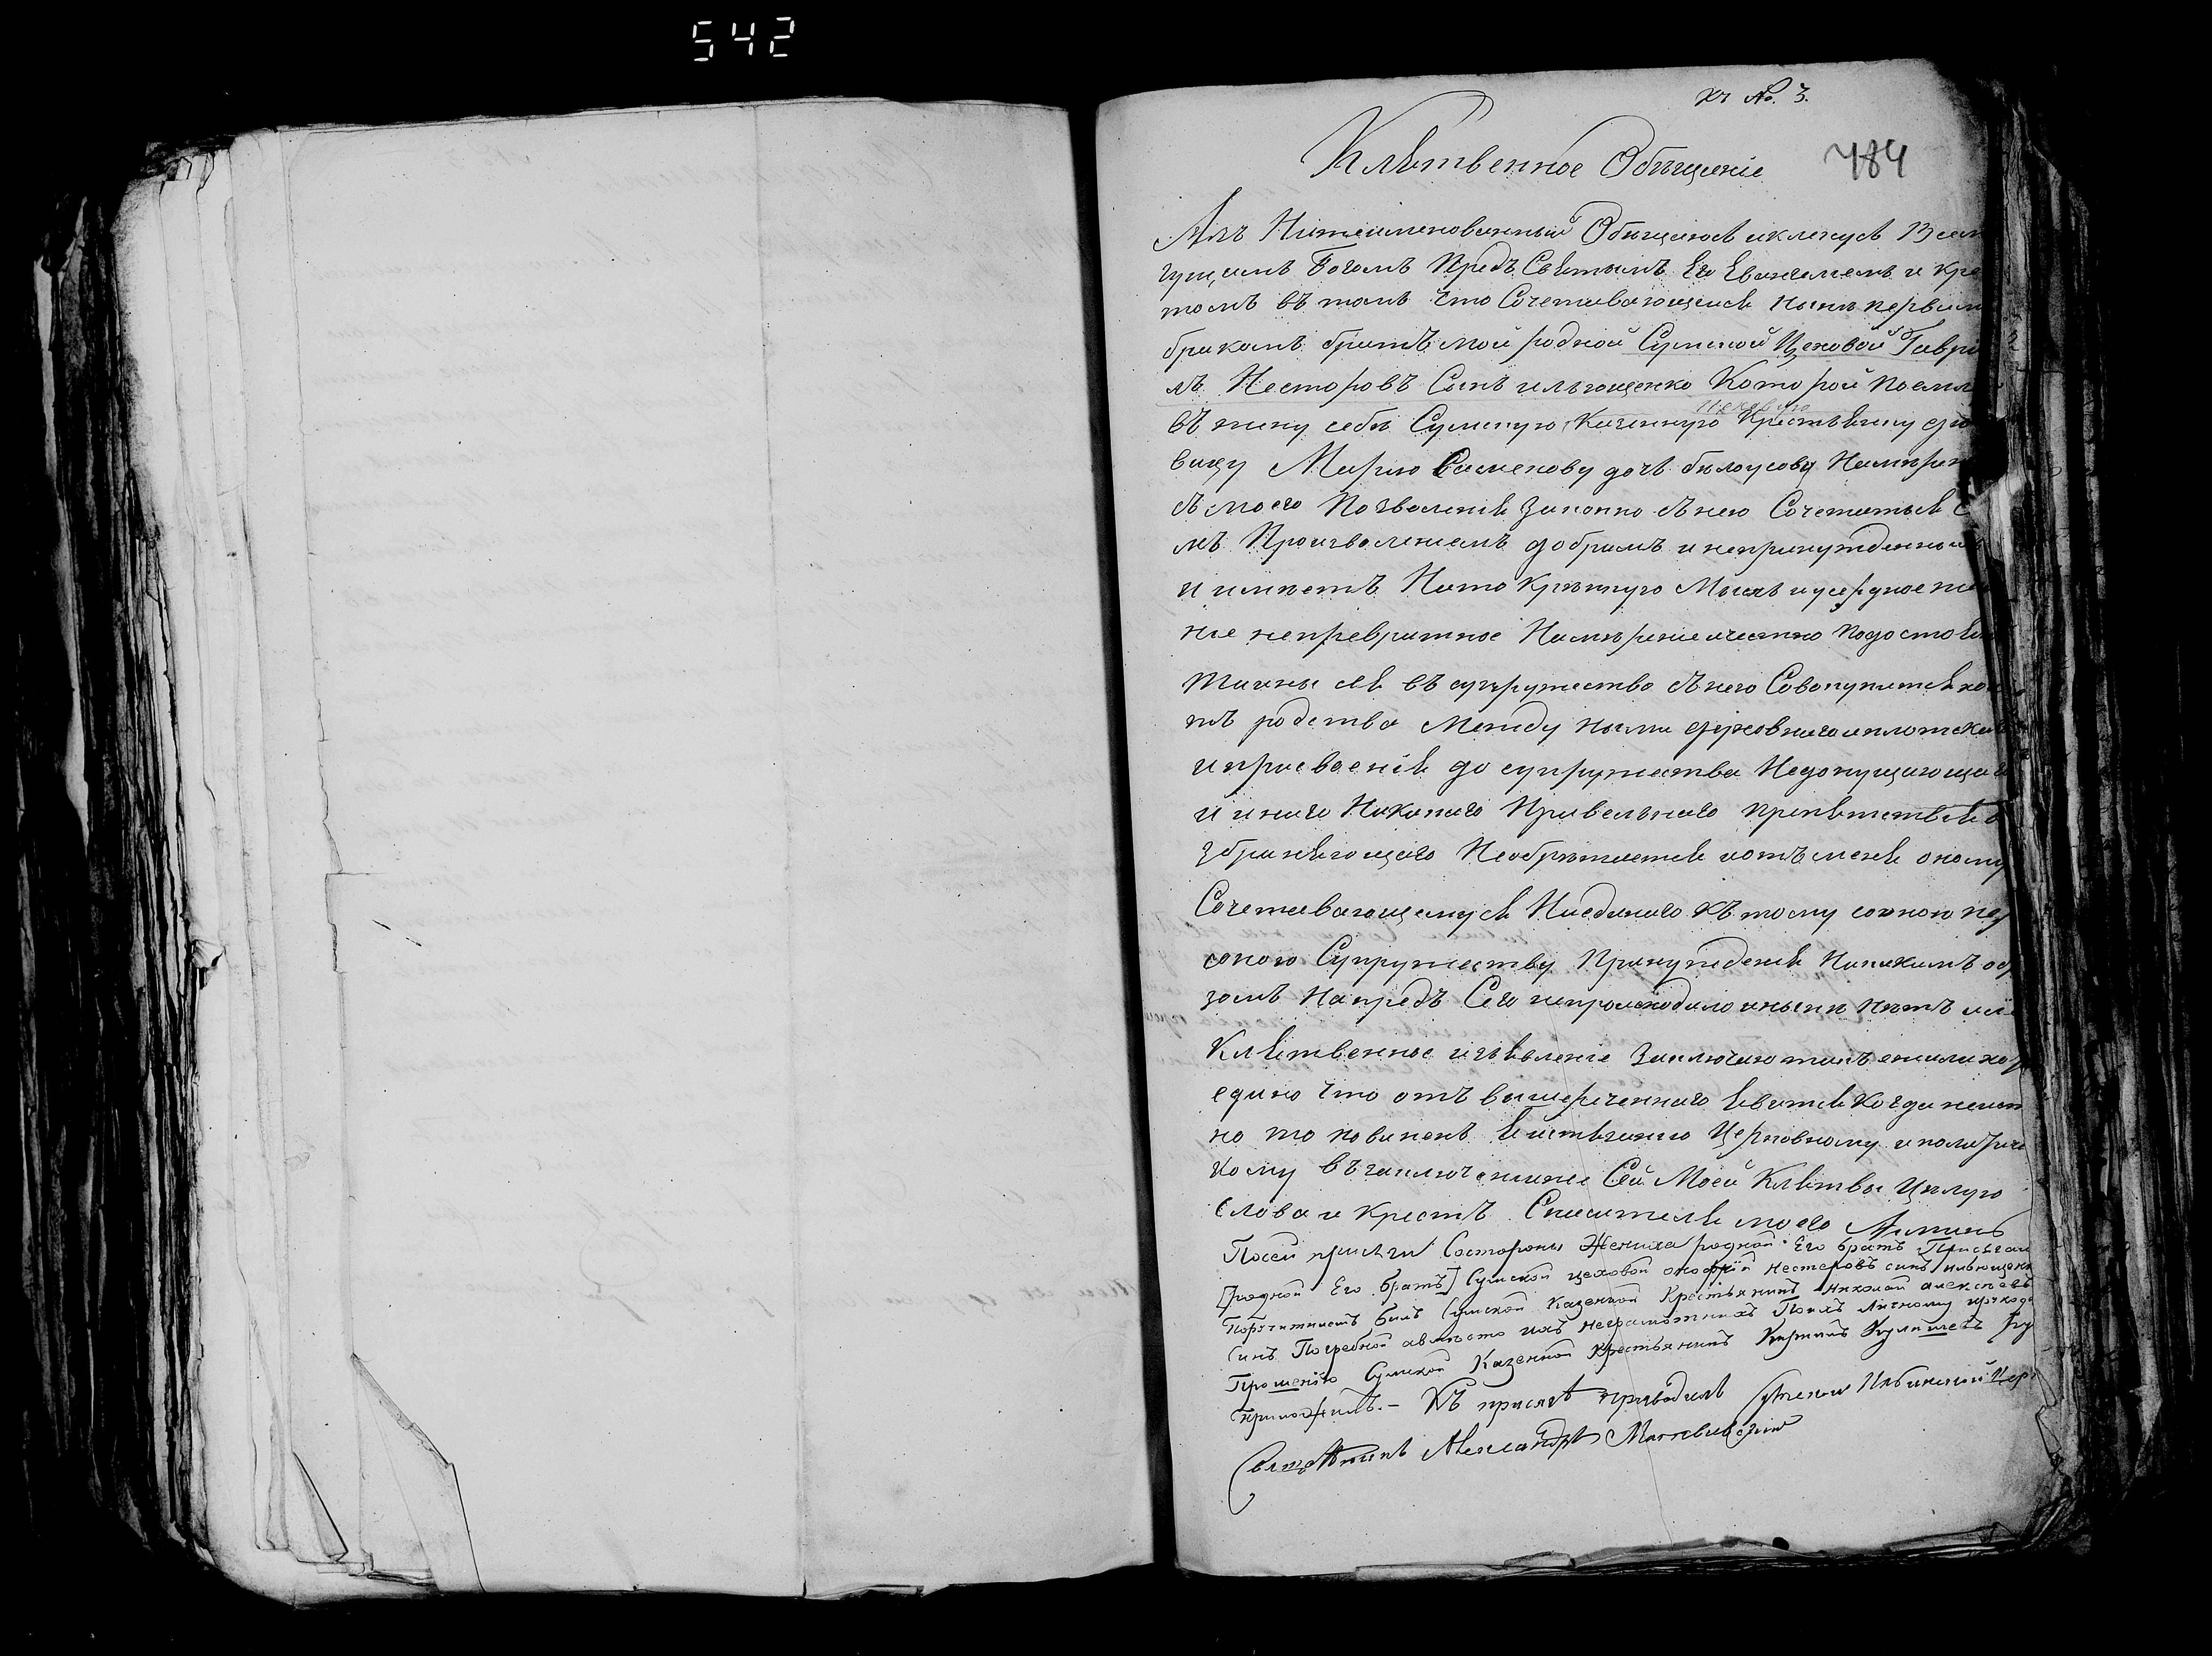 542
къ No. 3.
Клятвенное Обѣщеніе
484
Азъ Нижеименованный Обѣщаюсь и кленусь Всем
гущимъ Богомъ Предъ Святымъ Его Евангелемъ и кре
томъ въ томъ что Сочетавающейся нынѣ первым
бракомъ братъ мой родной Сумской Цеховой Гаври
лъ Несторовъ Сынъ ильющенко Которой поемл
въ жену себѣ Сумскую Казенную Крестьянку
вицу Марию Семенову дочь белоусову Намѣрен
съ моего Позволенія Законно съ нею Сочетаться
мъ Произволенiемъ добримъ и непринужденным
и имѣетъ На то Крѣпкую Мысль и усердное же
ние непревратное Намѣрение и честно по достоян
сь въ супружество съ нею Совокупится
нъ родства Между ными духовнаго и плотска
и присвоенія до супружества Недопущающаго
и инаго Никакаго Правельнаго препятствія
збраняющаго Необрѣтается и отъ меня оному
Сочетавающемуся Ниединаго къ тому
оного Супружеству Принужденія Никакимъ об
зомъ Напредъ Сего непроисходило и нынѣ нѣтъ
Клятвенное изъявленіе Заключаю такъ ежели хо
едино что отъ вышереченнаго явится Когда неист
но то повиненъ Церковному и полити
кому въ заключение Сей Моей Клятвы Цѣлую
Слова и крестъ Спасителя моего Аминь
По сей присяги Состороны Жениха родной Его братъ Присягал
[родной Его братъ] Сумской цеховой онофрій Нестеровъ синъ ильющенк
билъ Сумской Казенной Крестьянинъ Николай алексѣевъ
Синъ Погребной авместо ихъ неграмотнихъ Поихъ Личному
Прошенію Сумской Казенной Крестьянинъ Кулишевъ ру
приложилъ. — Къ присягѣ приводилъ Сумской Ильинской Цер
Священникъ Александръ